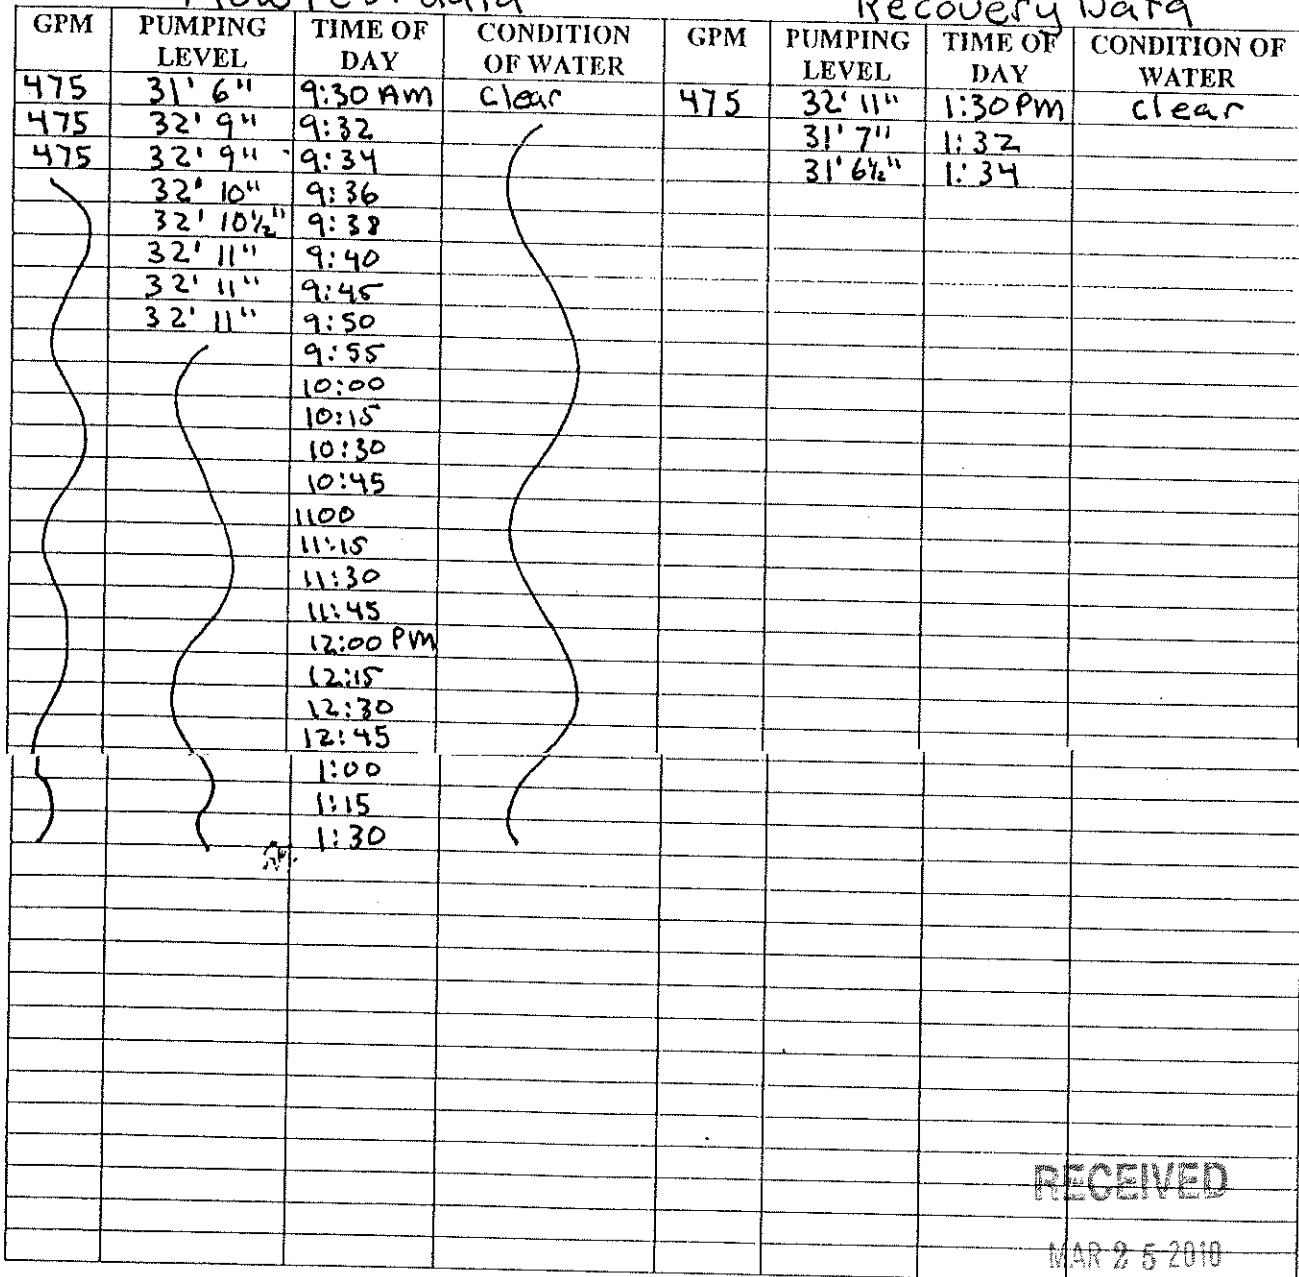 Flow Test data Recovery Data
GPM PUMPING LEVEL TIME OF DAY CONDITION OF WATER GPM PUMPING LEVEL TIME OF DAY CONDITION OF WATER
475 31' 6" 9:30 AM Clear 475 32' 11" 1:30 PM clear
475 32' 9" 9:32 31' 7" 1:32
475 32' 9" 9:34 31' 6½" 1:34
32' 10" 9:36
32' 10½" 9:38
32' 11" 9:40
32' 11" 9:45
32' 11" 9:50
9:55
10:00
10:15
10:30
10:45
1100
11:15
11:30
11:45
12:00 PM
12:15
12:30
12:45
1:00
1:15
1:30
RECEIVED
MAR 25 2010